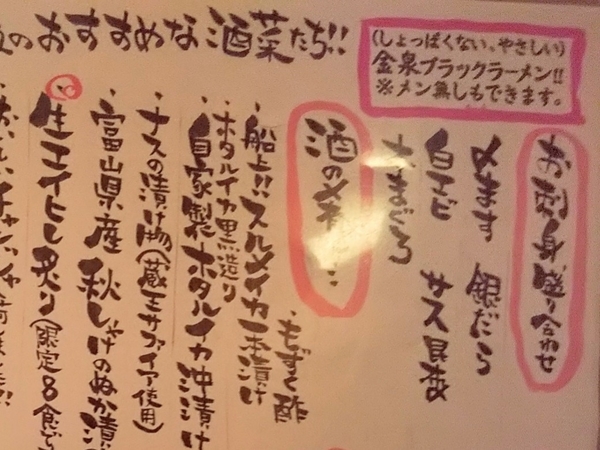 のおすすめな酒菜たち!!
(しょっぱくない、やさしい)
金泉ブラックラーメン!!
※メン無しもできます。
お刺身盛り合わせ
〆ます 銀だら
白エビ サス昆布
まぐろ
酒の
・もずく酢
・船上!!スルメイカ一本漬け
・ホタルイカ黒造り
・自家製ホタルイカ沖漬け
・ナスの漬け物(蔵王サファイア使用)
・富山県産 秋しゃけのぬか漬
・生エイヒレ炙り(限定8食